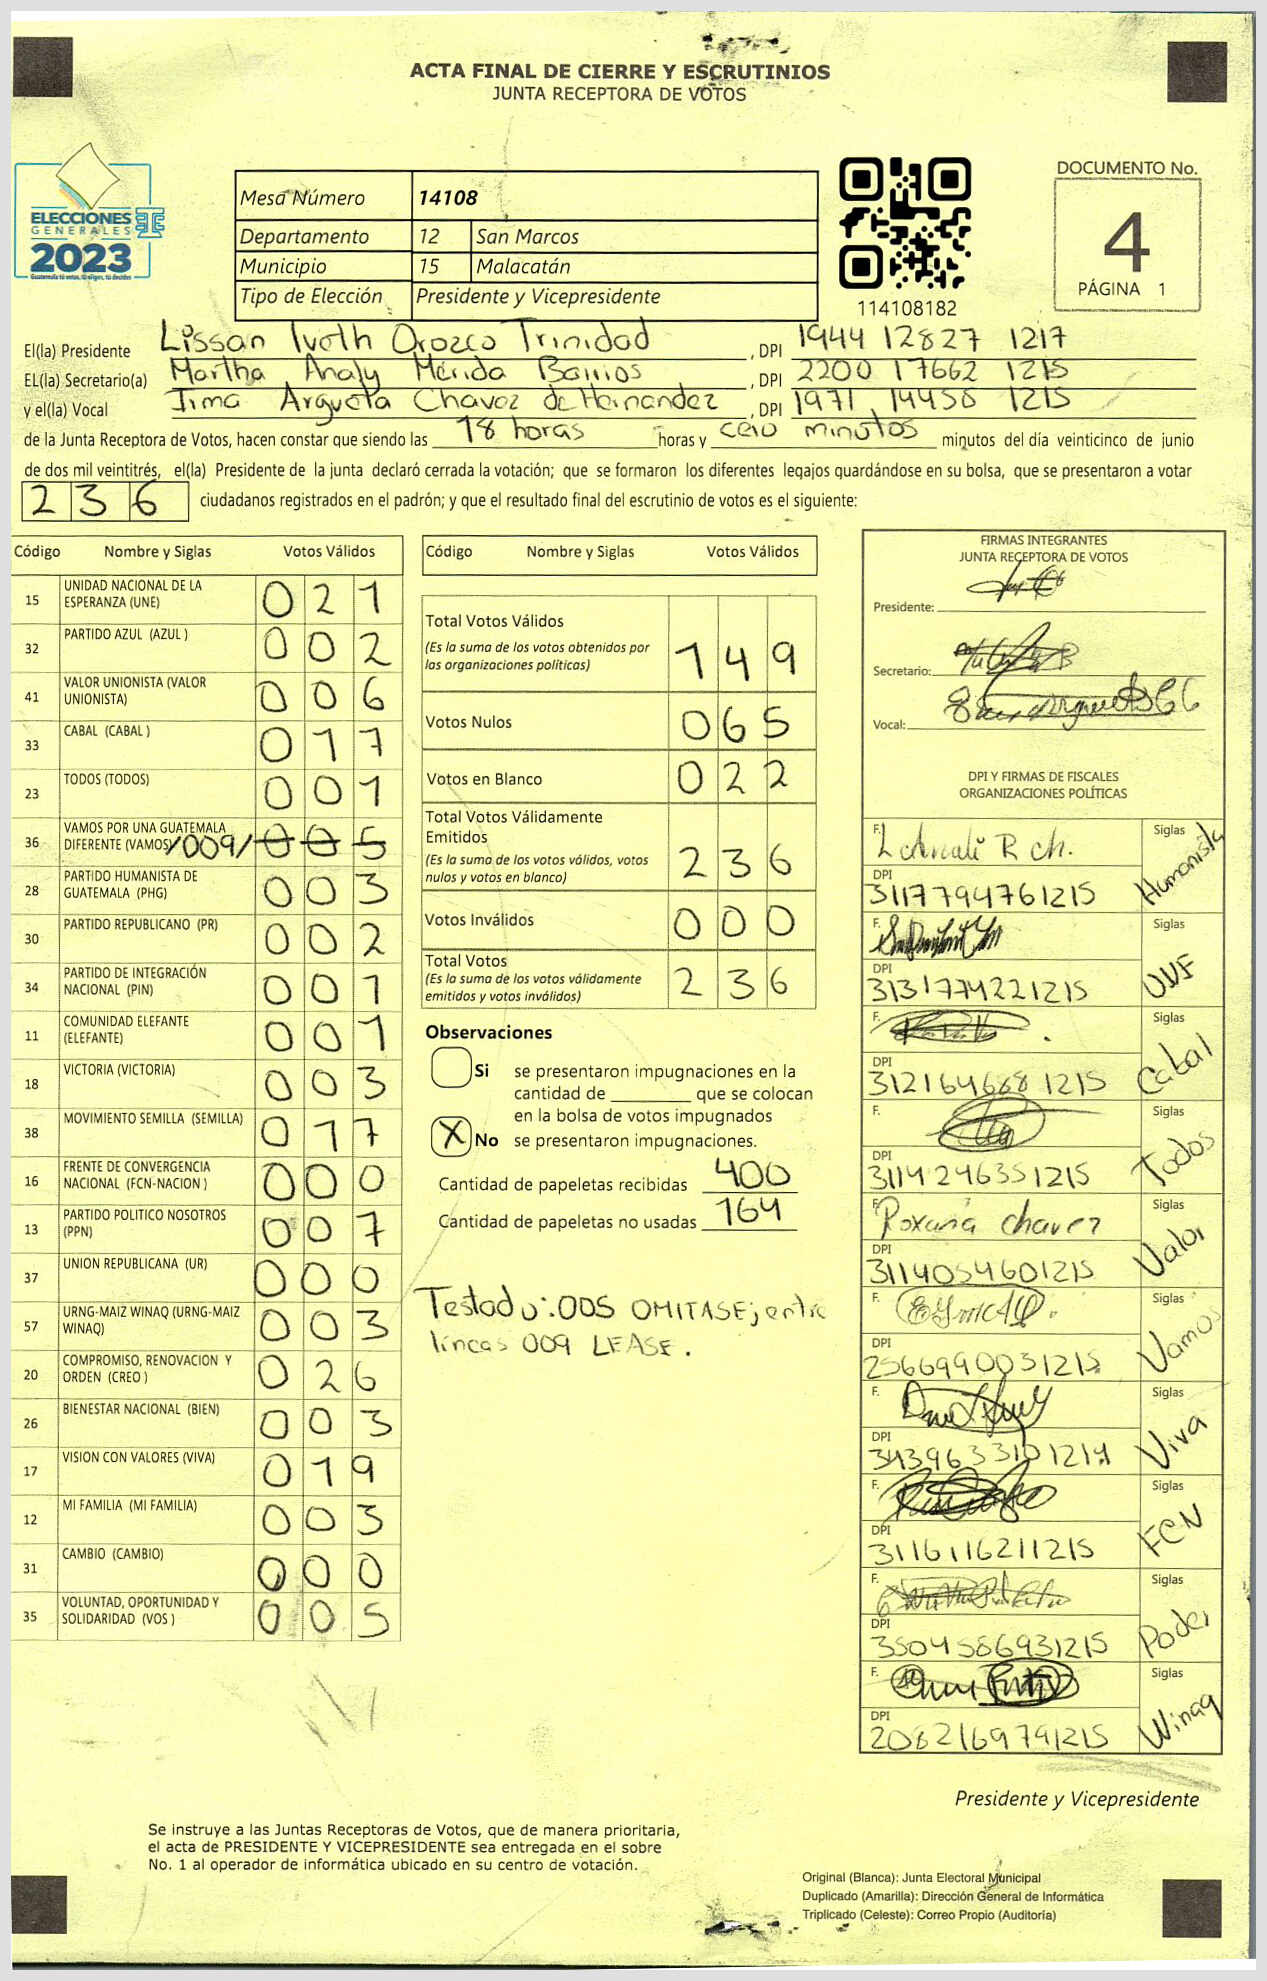 ACTA FINAL DE CIERRE Y ESCRUTINIOS
JUNTA RECEPTORA DE VOTOS
ELECCIONES
GENERALES
2023
Guatemala tú votas, tú eliges, tú decides
Mesa Número 14108
Departamento 12 San Marcos
Municipio 15 Malacatán
Tipo de Elección Presidente y Vicepresidente
114108182
DOCUMENTO No.
4
PÁGINA 1
El(la) Presidente Lissan Ivoth Orozco Trinidad, DPI 1944 12827 1217
EL(la) Secretario(a) Martha Analy Mérida Barrios, DPI 2200 17662 1215
y el(la) Vocal Irma Argueta Chavez de Hernandez, DPI 1971 14458 1215
de la Junta Receptora de Votos, hacen constar que siendo las 18 horas horas y cero minutos minutos del día veinticinco de junio
de dos mil veintitrés, el(la) Presidente de la junta declaró cerrada la votación; que se formaron los diferentes legajos quardándose en su bolsa, que se presentaron a votar
236 ciudadanos registrados en el padrón; y que el resultado final del escrutinio de votos es el siguiente:
Código Nombre y Siglas Votos Válidos
15 UNIDAD NACIONAL DE LA ESPERANZA (UNE) 021
32 PARTIDO AZUL (AZUL ) 002
41 VALOR UNIONISTA (VALOR UNIONISTA) 006
33 CABAL (CABAL ) 017
23 TODOS (TODOS) 001
36 VAMOS POR UNA GUATEMALA DIFERENTE (VAMOS) /009/ 005
28 PARTIDO HUMANISTA DE GUATEMALA (PHG) 003
30 PARTIDO REPUBLICANO (PR) 002
34 PARTIDO DE INTEGRACIÓN NACIONAL (PIN) 001
11 COMUNIDAD ELEFANTE (ELEFANTE) 001
18 VICTORIA (VICTORIA) 003
38 MOVIMIENTO SEMILLA (SEMILLA) 017
16 FRENTE DE CONVERGENCIA NACIONAL (FCN-NACION ) 000
13 PARTIDO POLITICO NOSOTROS (PPN) 007
37 UNION REPUBLICANA (UR) 000
57 URNG-MAIZ WINAQ (URNG-MAIZ WINAQ) 003
20 COMPROMISO, RENOVACION Y ORDEN (CREO ) 026
26 BIENESTAR NACIONAL (BIEN) 003
17 VISION CON VALORES (VIVA) 019
12 MI FAMILIA (MI FAMILIA) 003
31 CAMBIO (CAMBIO) 000
35 VOLUNTAD, OPORTUNIDAD Y SOLIDARIDAD (VOS ) 005
Código Nombre y Siglas Votos Válidos
Total Votos Válidos
(Es la suma de los votos obtenidos por las organizaciones políticas) 149
Votos Nulos 065
Votos en Blanco 022
Total Votos Válidamente Emitidos
(Es la suma de los votos válidos, votos nulos y votos en blanco) 236
Votos Inválidos 000
Total Votos
(Es la suma de los votos válidamente emitidos y votos inválidos) 236
Observaciones
Si se presentaron impugnaciones en la
cantidad de ________ que se colocan
en la bolsa de votos impugnados
X No se presentaron impugnaciones.
Cantidad de papeletas recibidas 400
Cantidad de papeletas no usadas 164
Testado: 005 OMITASE; entre
lineas 009 LEASE.
FIRMAS INTEGRANTES
JUNTA RECEPTORA DE VOTOS
Presidente:
Secretario:
Vocal:
DPI Y FIRMAS DE FISCALES
ORGANIZACIONES POLÍTICAS
F. Siglas Humanista
DPI 3117794761215
F. Siglas
DPI 3131774221215
F. Siglas Cabal
DPI 3121646681215
F. Siglas Todos
DPI 3114246351215
F. Roxana Chavez Siglas Valor
DPI 3114054601215
F. Siglas Vamos
DPI 2566990031215
F. Siglas Viva
DPI
F. Siglas FCN
DPI 3116116211215
F. Siglas Poder
DPI 3504586931215
F. Siglas Winaq
DPI 2082169791215
Presidente y Vicepresidente
Se instruye a las Juntas Receptoras de Votos, que de manera prioritaria,
el acta de PRESIDENTE Y VICEPRESIDENTE sea entregada en el sobre
No. 1 al operador de informática ubicado en su centro de votación.
Original (Blanca): Junta Electoral Municipal
Duplicado (Amarilla): Dirección General de Informática
Triplicado (Celeste): Correo Propio (Auditoría)